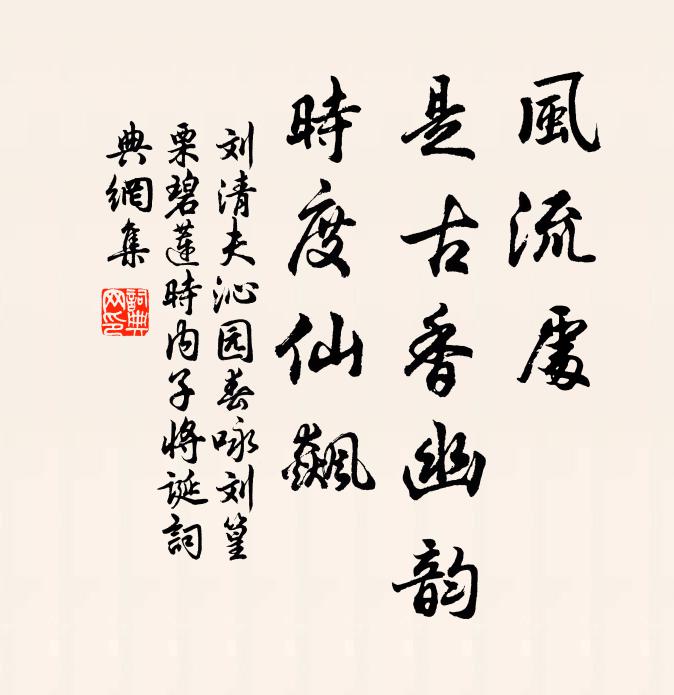 風流處
是古香幽韵
時度仙飆
刘清夫沁园春咏刘篁
栗碧莲時内子将诞詞
典網集
詞典網印